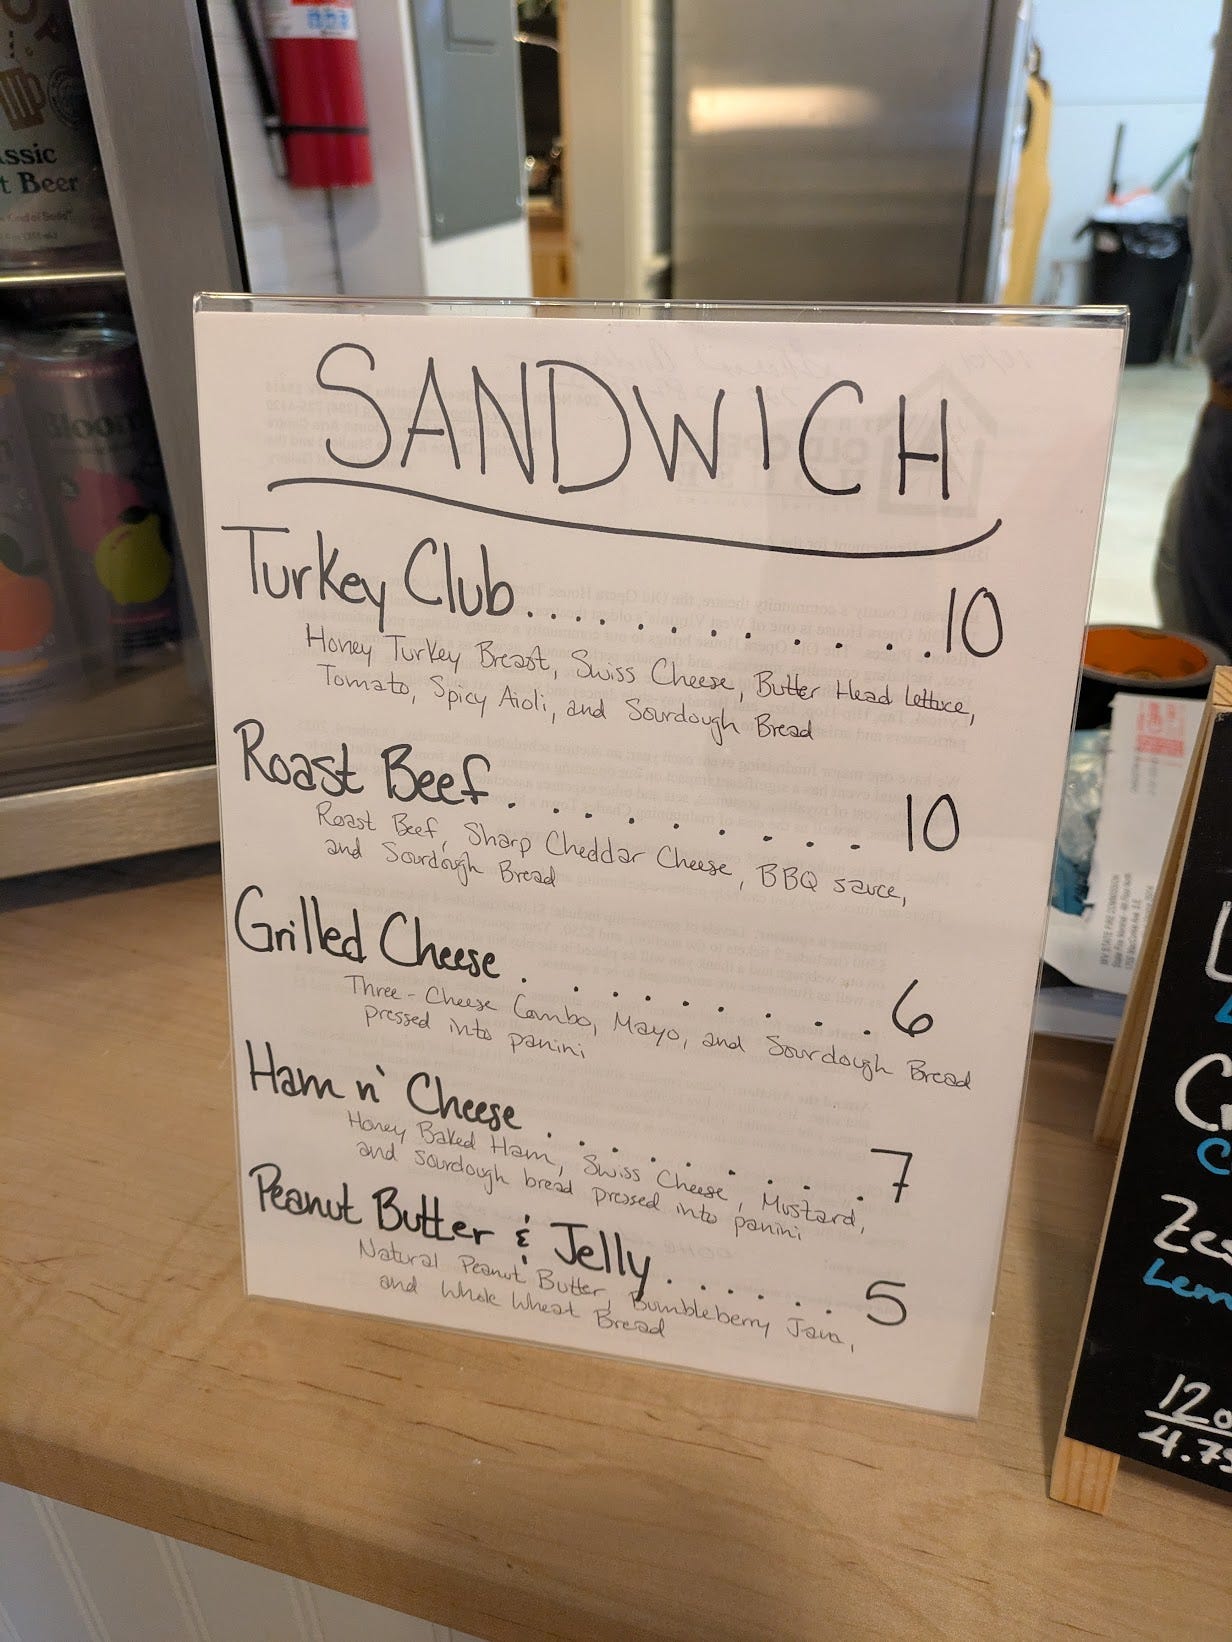 ssic
t Beer
Bloom
SANDWICH
Turkey Club.............10
Honey Turkey Breast, Swiss Cheese, Butter Head Lettuce,
Tomato, Spicy Aioli, and Sourdough Bread
Roast Beef......... 10
Roast Beef, Sharp Cheddar Cheese, BBQ sauce,
and Sourdough Bread
Grilled Cheese.........6
Three-Cheese Combo, Mayo, and Sourdough Bread
pressed into panini
Ham n' Cheese.........7
Honey Baked Ham, Swiss Cheese, Mustard,
and sourdough bread pressed into panini
Peanut Butter & Jelly......5
Natural Peanut Butter, Bumbleberry Java,
and Whole Wheat Bread
C
Ze
Lem
12o
4.75